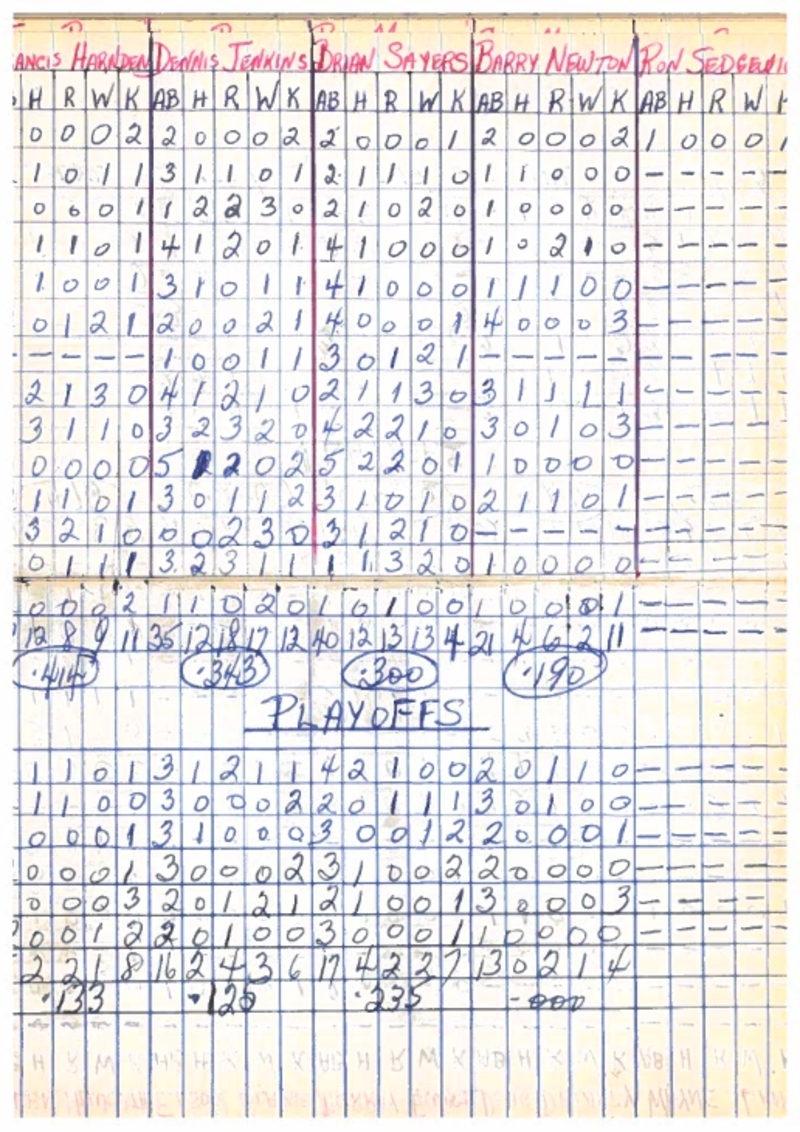 ANCIS HARNDEN DENNIS JENKINS BRIAN SAYERS BARRY NEWTON RON SEDGEWI
H R W K AB H R W K AB H R W K AB H R W K AB H R W K
0 0 0 2 2 0 0 0 2 2 0 0 0 1 2 0 0 0 2 1 0 0 0 1
1 0 1 1 3 1 1 0 1 2 1 1 1 0 1 1 0 0 0 – – – –
0 0 0 1 1 2 2 3 0 2 1 0 2 0 1 0 0 0 0 – – – –
1 1 0 1 4 1 2 0 1 4 1 0 0 0 1 0 2 1 0 – – – –
1 0 0 1 3 1 0 1 1 4 1 0 0 0 1 1 1 0 0 – – – –
0 1 2 1 2 0 0 2 1 4 0 0 0 1 4 0 0 0 3 – – – –
– – – – 1 0 0 1 1 3 0 1 2 1 – – – – – – – – –
2 1 3 0 4 1 2 1 0 2 1 1 3 0 3 1 1 1 1 – – – –
3 1 1 0 3 2 3 2 0 4 2 2 1 0 3 0 1 0 3 – – – –
0 0 0 0 5 1 2 0 2 5 2 2 0 1 1 0 0 0 0 – – – –
1 1 0 1 3 0 1 1 2 3 1 0 1 0 2 1 1 0 1 – – – –
3 2 1 0 0 0 2 3 0 3 1 2 1 0 – – – – – – – – –
0 1 1 1 3 2 3 1 1 1 1 3 2 0 1 0 0 0 0 – – – –
0 0 0 2 1 1 0 2 0 1 0 1 0 0 1 0 0 0 1 – – – –
12 8 9 11 35 12 18 17 12 40 12 13 13 4 21 4 6 2 11 – – – –
.414 .343 .300 .190
PLAYOFFS
1 1 0 1 3 1 2 1 1 4 2 1 0 0 2 0 1 1 0 – – – –
1 1 0 0 3 0 0 0 2 2 0 1 1 1 3 0 1 0 0 – – – –
0 0 0 1 3 1 0 0 0 3 0 0 1 2 2 0 0 0 1 – – – –
0 0 0 1 3 0 0 0 2 3 1 0 0 2 2 0 0 0 0 – – – –
0 0 0 3 2 0 1 2 1 2 1 0 0 1 3 0 0 0 3 – – – –
0 0 1 2 2 0 1 0 0 3 0 0 0 1 1 0 0 0 0 – – – –
2 2 1 8 16 2 4 3 6 17 4 2 2 7 13 0 2 1 4
.133 .125 .235 .000